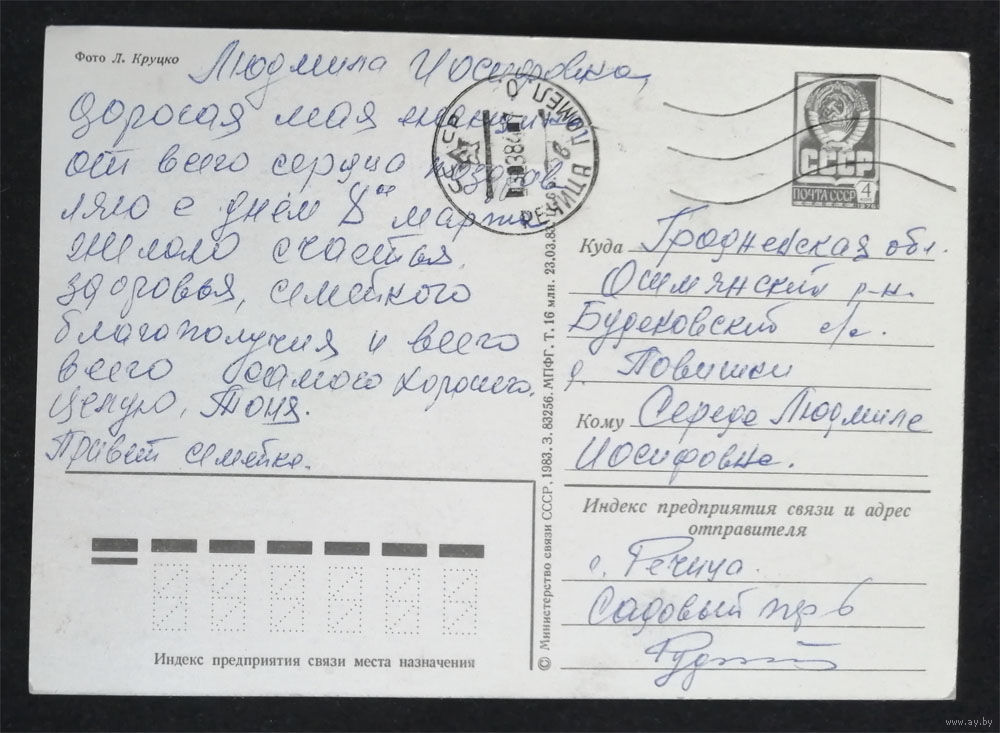 Фото Л. Круцко
Людмила Иосифовна,
Дорогая моя
от всего сердца поздрав
ляю с днём 8ым марта
желаю счастья,
здоровья, семейного
благополучия и всего
всего самого хорошего.
Целую, Тоня.
Привет семейке.
СССР
ПОЧТА СССР 4
1976
Куда Гродненская обл.
Ошмянский р-н.
Буденовский с/с.
д. Повишни
Кому Середе Людмиле
Иосифовне.
Индекс предприятия связи и адрес
отправителя
г. Речица.
Садовый пр 6
Индекс предприятия связи места назначения
© Министерство связи СССР, 1983. З. 83256. МПФГ. Т. 16 млн. 23.03.83
СССР РЕЧИЦА ГОМЕЛ. О.
www.ay.by